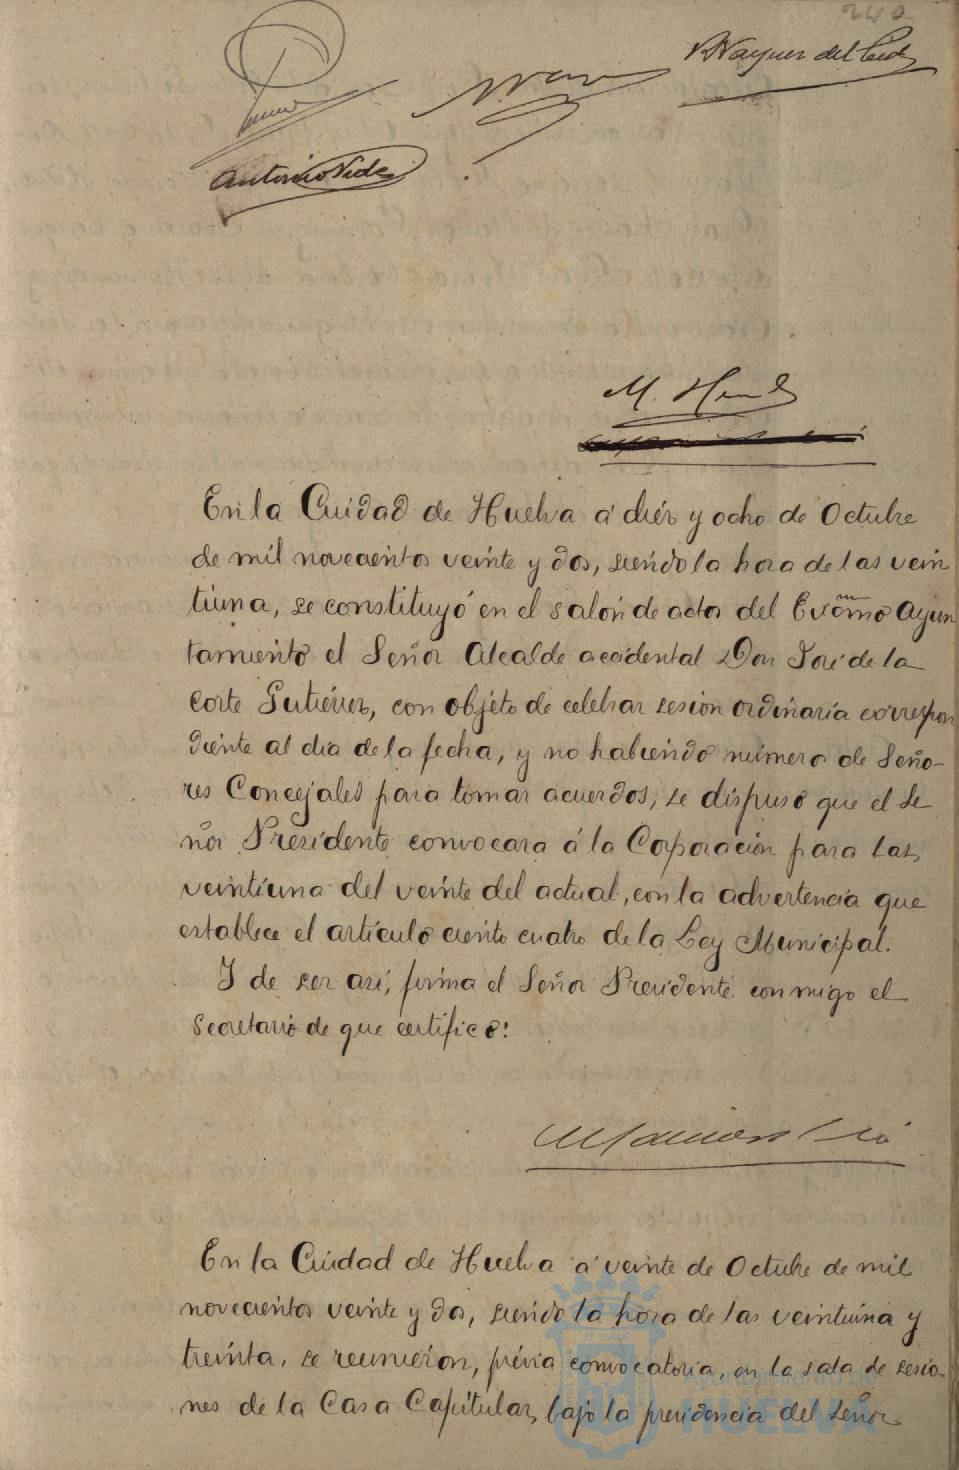 240
Antonio Vides
M. Hern
En la Cuidad de Huelva á diez y ocho de Octubre
de mil novecientos veinte y dos, siendo la hora de las vein
tiuna, se constituyó en el salón de actos del Excmo Ayun
tamiento el Señor Alcalde accidental Don José de la
Corte Gutiérrez, con objeto de celebrar sesion ordinaria correspon
diente al dia de la fecha, y no habiendo número de Seño-
res Concejales para tomar acuerdos, se dispuso que el Se
ñor Presidente convocara á la Corporación para las
veintiuna del veinte del actual, con la advertencia que
establece el artículo ciento cuatro de la Ley Municipal.
Y de ser asi, firma el Señor Presidente conmigo el
Secretario de que certifico:
En la Cuidad de Huelva á veinte de Octubre de mil
novecientos veinte y dos, siendo la hora de las veintiuna y
treinta, se reunieron, prévia convocatoria, en la sala de sesio-
nes de la Casa Capitular, bajo la presidencia del Señor
Ayuntamiento de
HUELVA